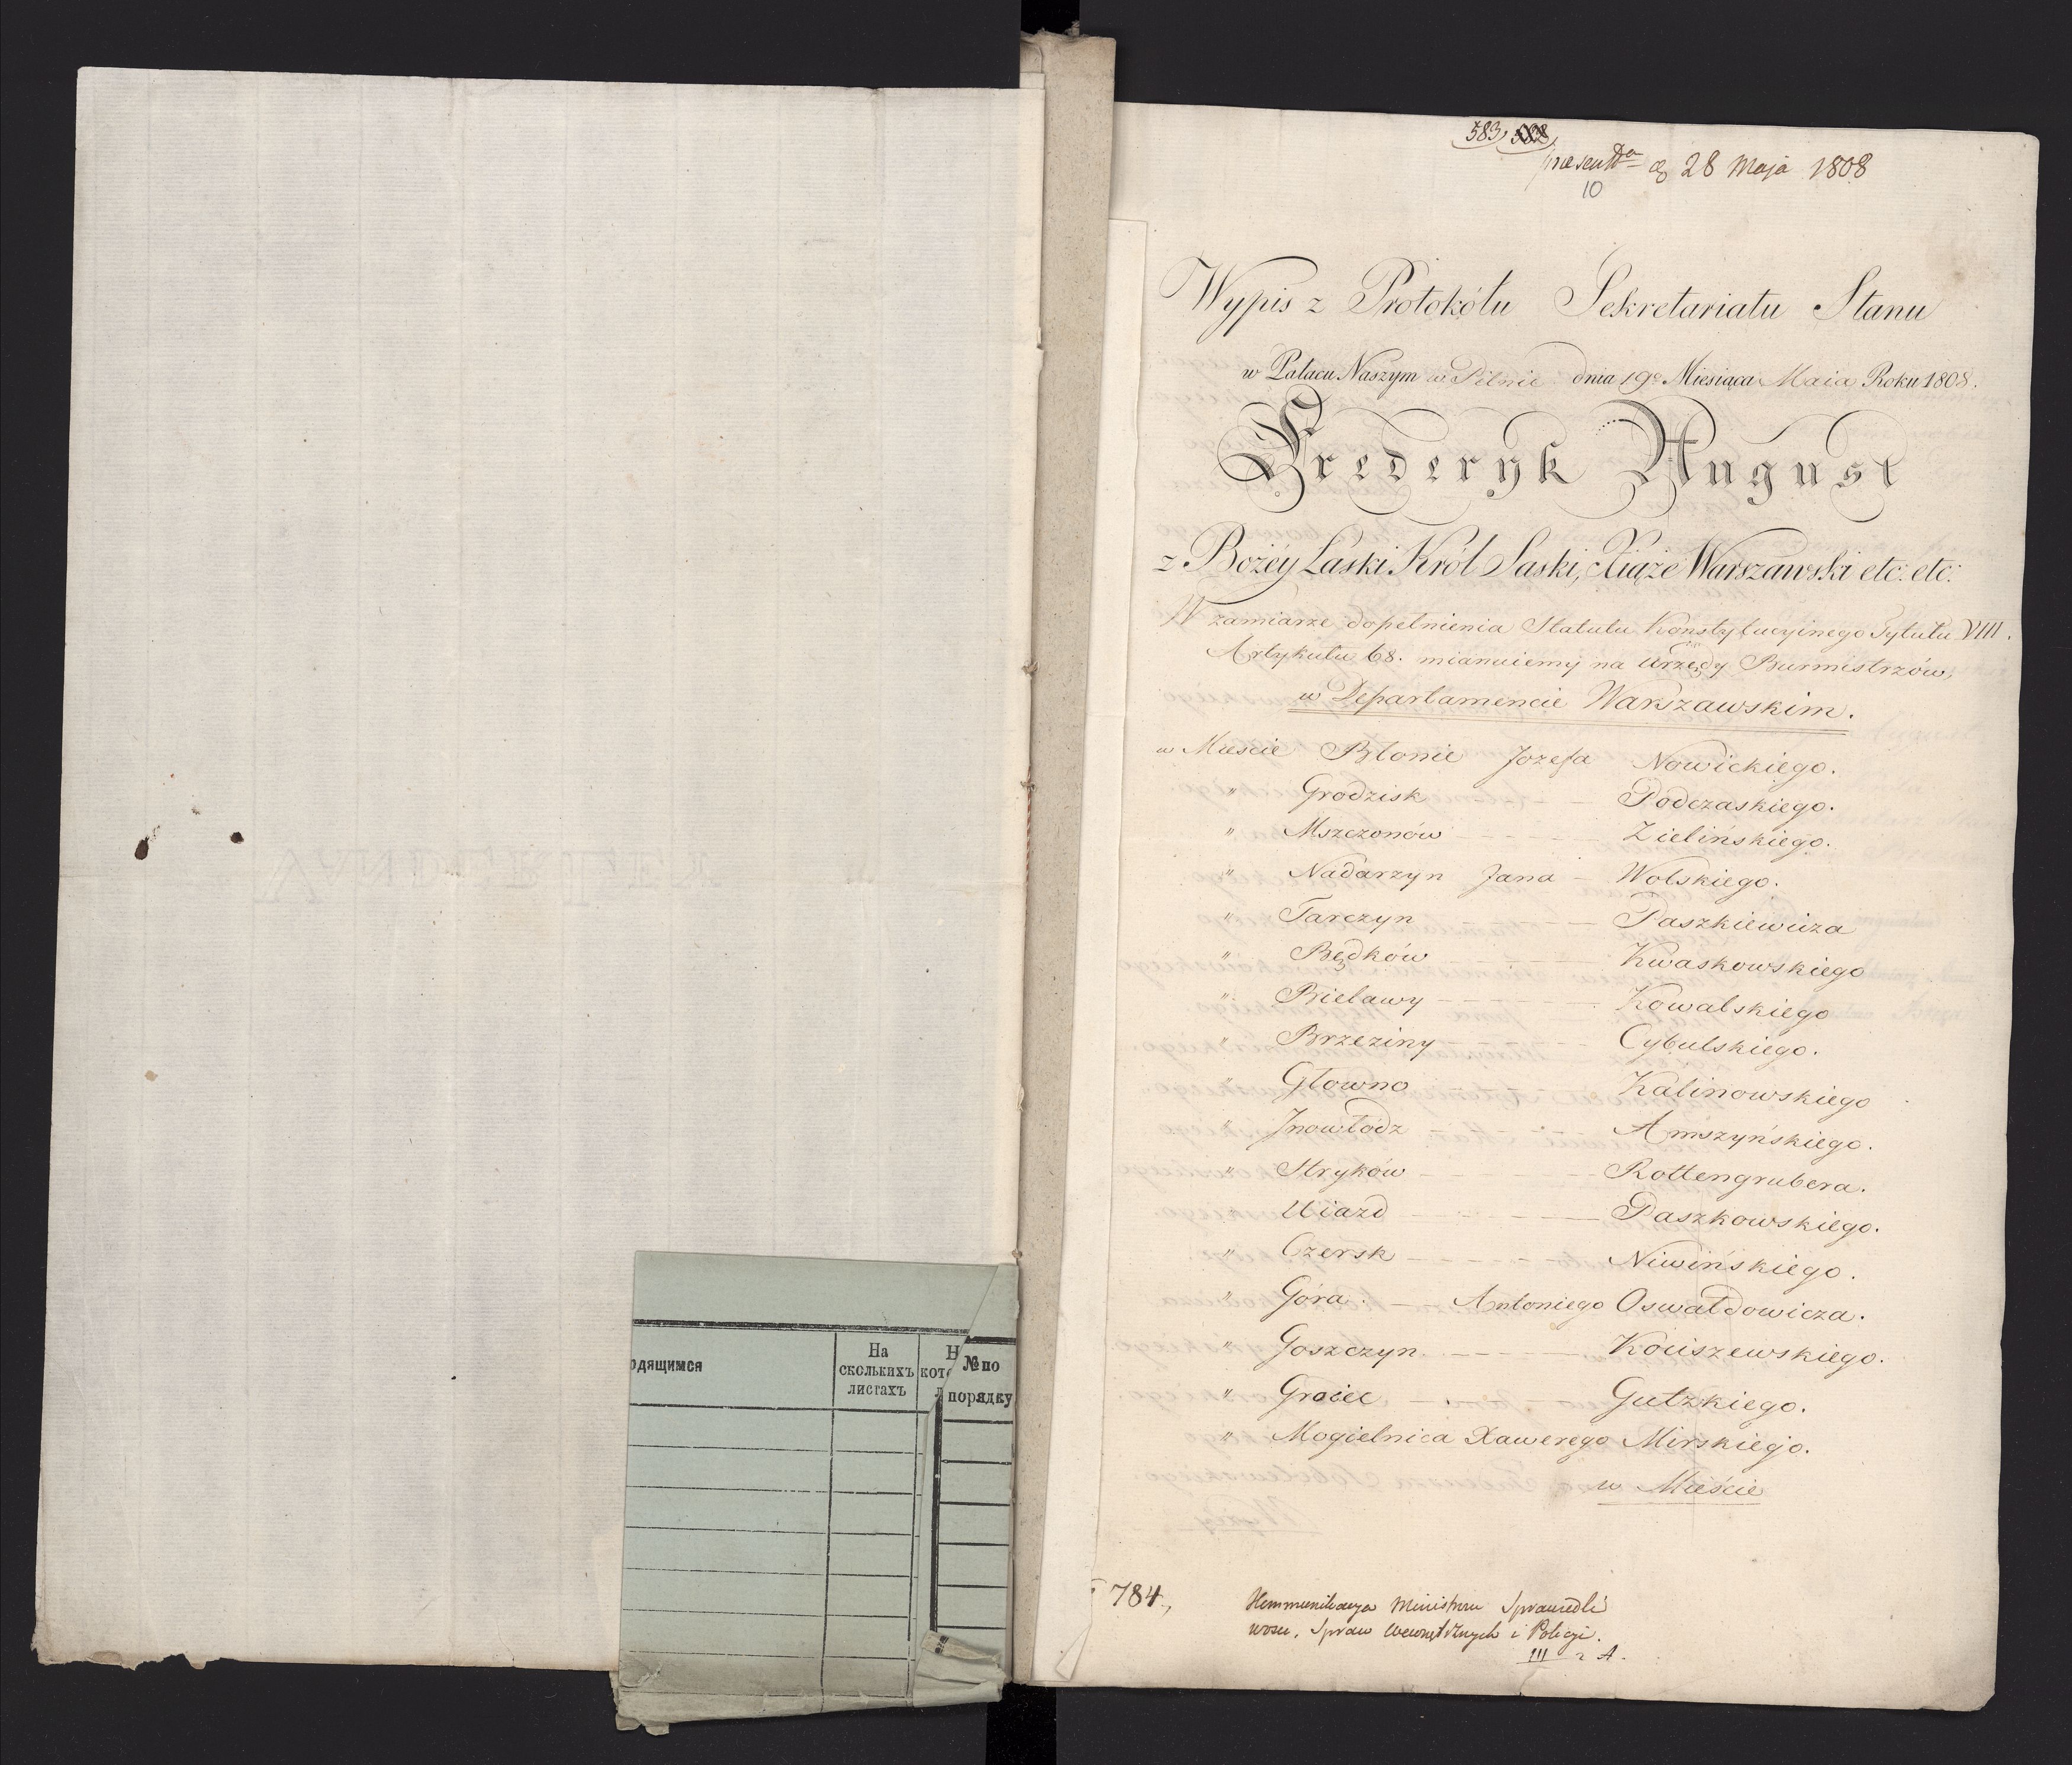 VANDERLEY
одящимся
На
скольких листах
№ по
порядку
583, 582
praesentta d 28 Maja 1808
10
Wypis z Protokółu Sekretariatu Stanu
w Pałacu Naszym w Pilnie dnia 19o Miesiąca Maia Roku 1808.
Frederyk August
z Bożéy Łaski Król Saski, Xiąże Warszawski etc: etc:
W zamiarze dopełnienia Statutu Konstytucyinego Tytułu VIII.
Artykułu 68. mianuiemy na Urzędy Burmistrzów,
w Departamencie Warszawskim.
w Mieście Błonie Jozefa Nowickiego.
" Grodzisk - - Podczaskiego.
" Mszczonów - - - - - Zielińskiego.
" Nadarzyn Jana - Wolskiego.
" Tarczyn - - - - - Paszkiewicza
" Będków - - - - - Kwaskowskiego
" Bielawy - - - - - Kowalskiego
" Brzeziny - - - - - Cybulskiego.
" Głowno - - - - - Kalinowskiego
" Jnowłodz - - - - - Amszyńskiego.
" Stryków - - - - - Rottengrubera.
" Uiazd - - - - - Paszkowskiego.
" Czersk - - - - - Niwińskiego.
" Góra. - Antoniego Oswałdowicza.
" Goszczyn - - - - - Kouiszewskiego.
" Groiec - - - Gutzkiego.
" Mogielnica Xawerego Mirskiego.
w Mieście
784,
Kommunikacya Ministrom Sprawiedli
wości, Spraw Wewnętrznych i Policyi.
III 2 A.